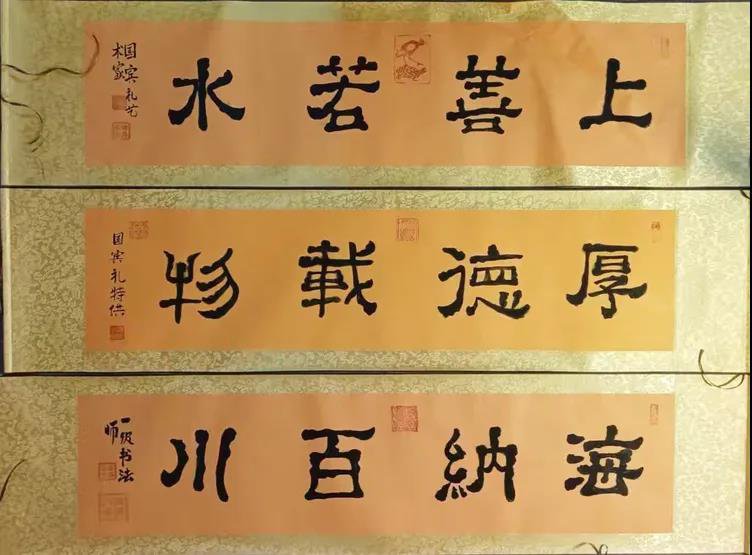 上善若水
国宾礼艺
术家
厚德載物
国宾礼特供
海納百川
一级书法
师